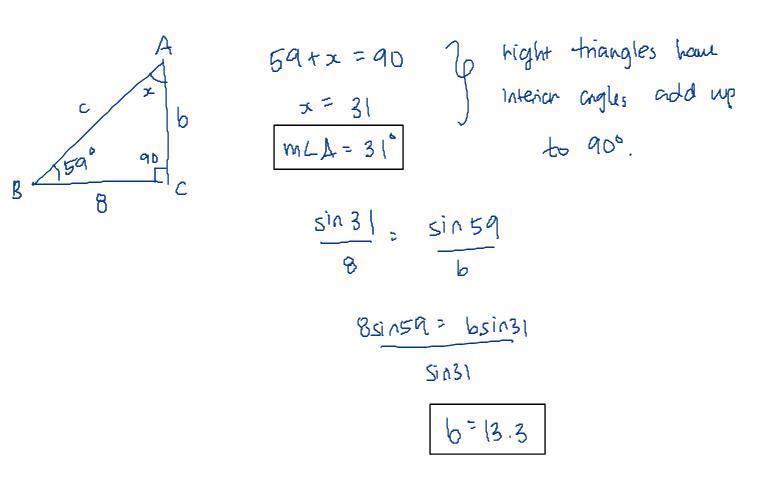 A
x
c
b
59°
90
B
C
8
59 + x = 90
x = 31
m∠A = 31°
right triangles have
interior angles add up
to 90°.
sin 31 / 8 = sin 59 / b
8sin59 = bsin31
sin31
b = 13.3